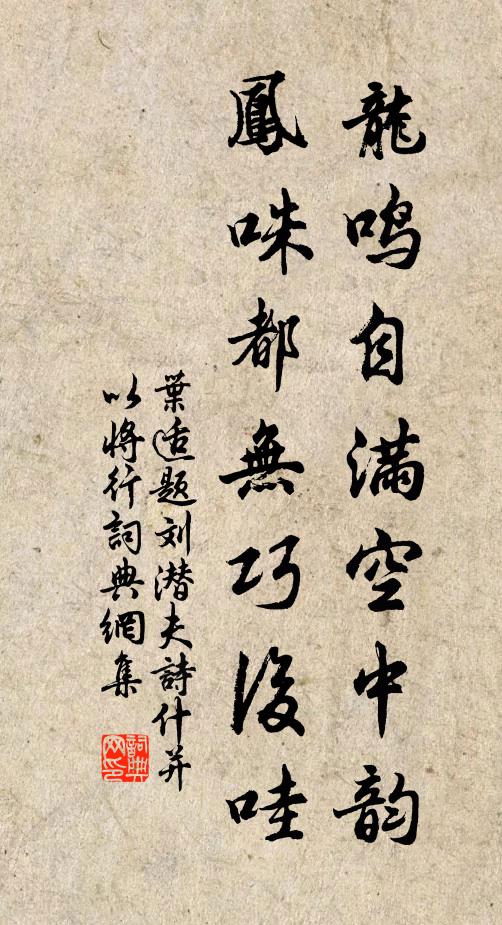 龍鳴自滿空中韵
鳳咮都無巧後哇
葉适題刘潜夫詩什并
以將行詞典網集
詞典網印